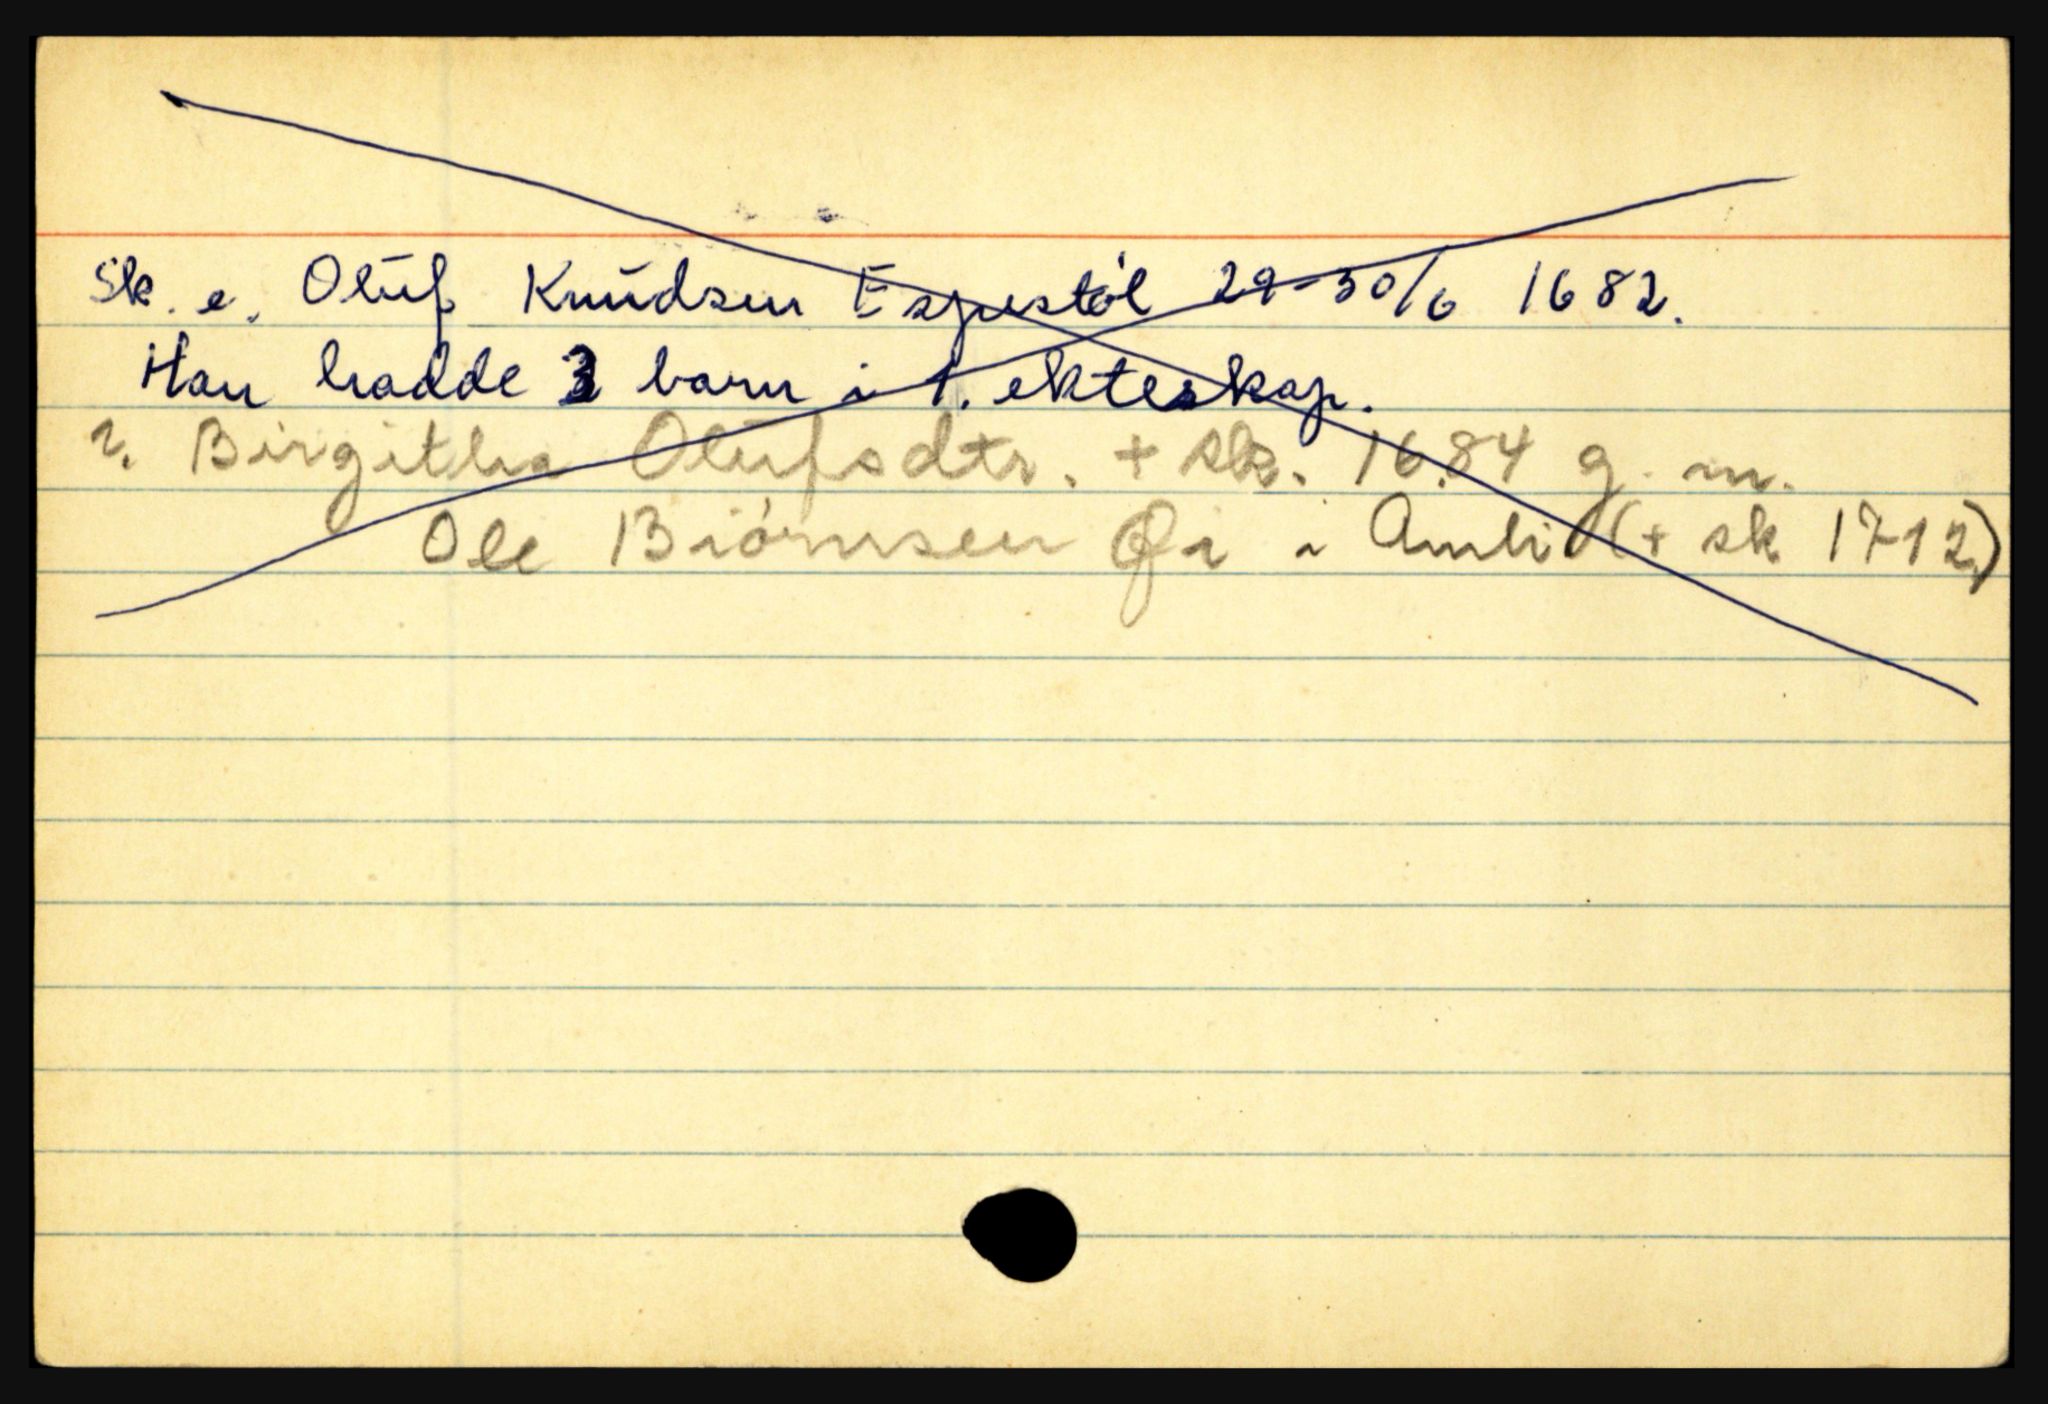 Sk. e. Oluf Knudsen Espestöl 29-30/6 1682.
Han hadde 3 barn i 1. ekteskap.
2. Birgitha Olufsdtr. + sk. 1684 g. m.
Ole Biörnsen Øi i Amli (+ sk 1712)